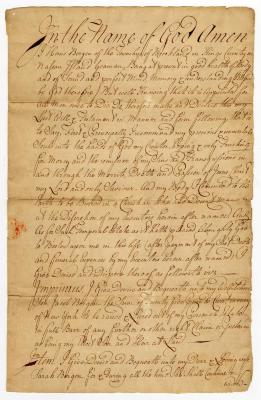 In the Name of God Amen
I Hans Bergen of the Township of Brookland in Kings County on
Nassau Island Yeoman Being at present in good health of Body
and of Sound and perfect Mind Memory & understanding Blessed
be God therefore But well knowing that it is appointed for
all Men once to Die Do therefore make and Declare this my
Last Will & Testament in Manner and form following That is
to Say First & Principally I recommend my precious & immortal
Soul into the hands of God my Creator hoping & only Trusting
for Mercy and the remission of my Sins and Transgressions in
and through the Merits Death and Passion of Jesus Christ
my Lord and only Saviour And my Body I Commit to the
Earth to be buried in a Christian like and Decent Manner
at the Discretion of my Executors herein after named And
As for Such Temporal Estate as it hath pleased Almighty God
to Bestow upon me in this life after payment of my Just Debts
and funeral expences by my Executors herein after named I
Give Devise and Dispose thereof as followeth viz
Imprimis I Give Devise and Bequeath unto my Eldest
Son Jacob Bergen the Sum of Twenty five Shillings Current money
of New York to be raised & Levied out of my Personal Estate
in full Barr of any further or other Right Claim or Inheritance
as being my Eldest Son and Heir at Law
Item I Give Devise and Bequeath unto my Dear & Loving wife
Sarah Bergen for & During all the time She Shall Continue to